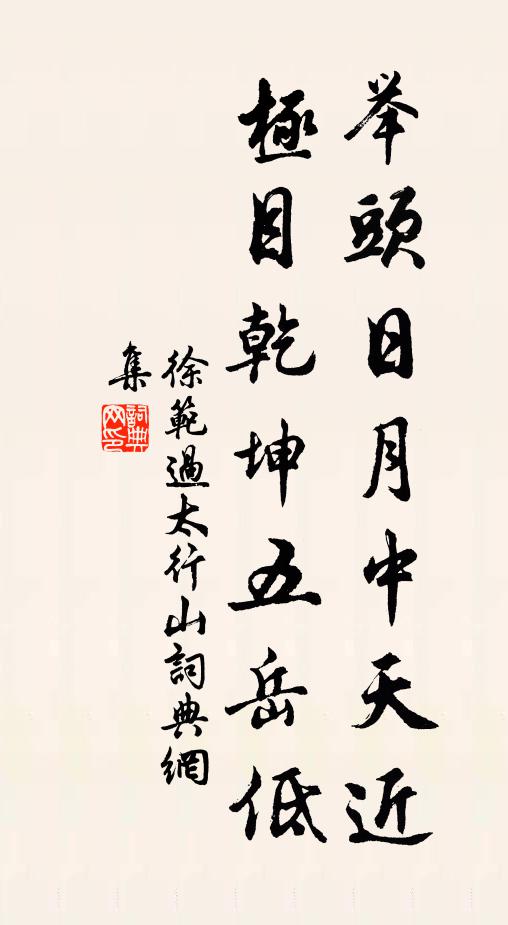 举頭日月中天近
極目乾坤五岳低
徐範過太行山詞典網
集
詞典
网印